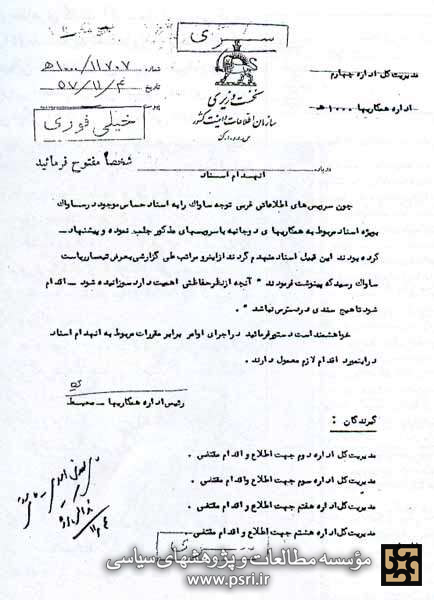 سری
نخست وزیری
سازمان اطلاعات و امنیت کشور
س.ا.و.ا.ک
شماره ۱۱۷۰۷/۱۰۰۰ه‍
تاریخ ۵۷/۱۱/۴
پیوست
خیلی فوری
مدیریت کل اداره چهارم
اداره همکاریها ۱۰۰۰ ه‍
شخصاً مفتوح فرمائید
درباره انهدام اسناد
چون سرویس های اطلاعاتی غرب توجه ساواک را به اسناد حساس موجود در ساواک
بویژه اسناد مربوط به همکاریهای دوجانبه با سرویسهای مذکور جلب نموده و پیشنهاد
کرده بودند این قبیل اسناد منهدم گردند از اینرو مراتب طی گزارشی بعرض تیمسار ریاست
ساواک رسید که پینوشت فرمودند " آنچه از نظر حفاظتی اهمیت دارد سوزانیده شود - اقدام
شود تا هیچ سندی در دسترس نباشد "
خواهشمند است دستور فرمائید در اجرای اوامر برابر مقررات مربوط به انهدام اسناد
در اینمورد اقدام لازم معمول دارند .
رئیس اداره همکاریها - محیط
گیرندگان :
مدیریت کل اداره دوم جهت اطلاع و اقدام مقتضی .
مدیریت کل اداره سوم جهت اطلاع و اقدام مقتضی .
مدیریت کل اداره هفتم جهت اطلاع و اقدام مقتضی .
مدیریت کل اداره هشتم جهت اطلاع و اقدام مقتضی .
۱۱/۴
سری
مؤسسه مطالعات و پژوهشهای سیاسی
www.psri.ir